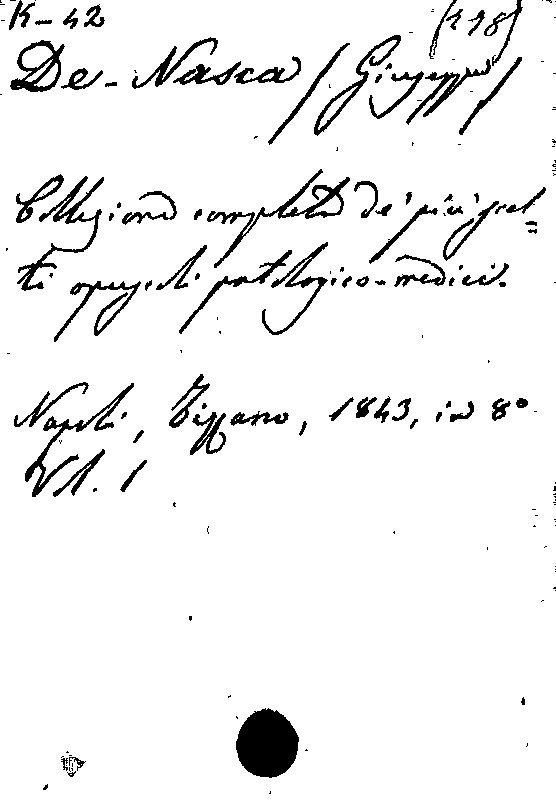 K-42 (198)
De-Nasca / Giuseppe /
Collezione completa de' più scel=
ti opuscoli patologico-medici.
Napoli, Tizzano, 1843, in 8°
Vol. 1